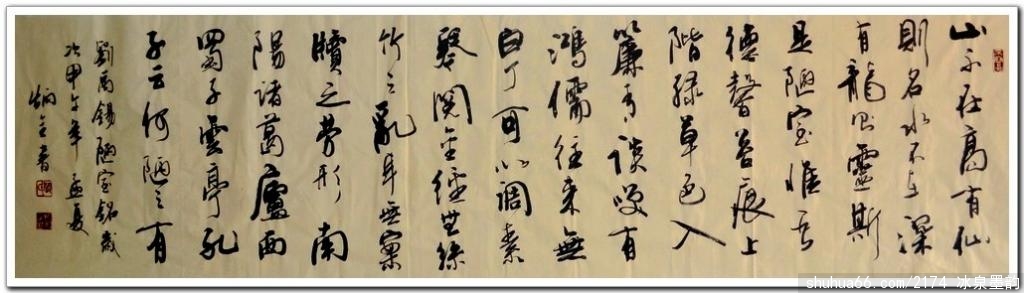 山不在高有仙
則名水不在深
有龍則靈斯
是陋室惟吾
德馨苔痕上
階緑草色入
簾青談咲有
鴻儒往来無
白丁可以調素
琴閲金經無絲
竹之亂耳無案
牘之勞形南
陽諸葛廬西
蜀子雲亭孔
子云何陋之有
劉禹錫陋室銘歲
次甲午年孟夏
炳全書
shuhua66.com/2174 冰泉墨韵